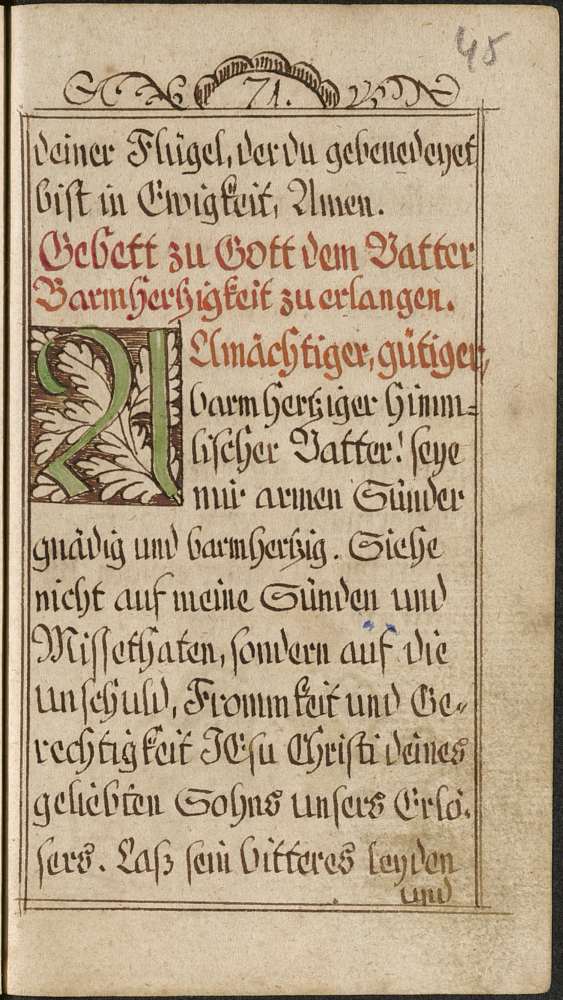 45
71.
deiner Flügel, der du gebenedeyet
bist in Ewigkeit, Amen.
Gebett zu Gott dem Vatter
Barmhertzigkeit zu erlangen.
Almächtiger, gütiger,
barmhertziger himm=
lischer Vatter! seye
mir armen Sünder
gnädig und barmhertzig. Siehe
nicht auf meine Sünden und
Missethaten, sondern auf die
Unschuld, Frommkeit und Ge=
rechtigkeit JEsu Christi deines
geliebten Sohns unsers Erlö=
sers. Laß sein bitteres leyden
und